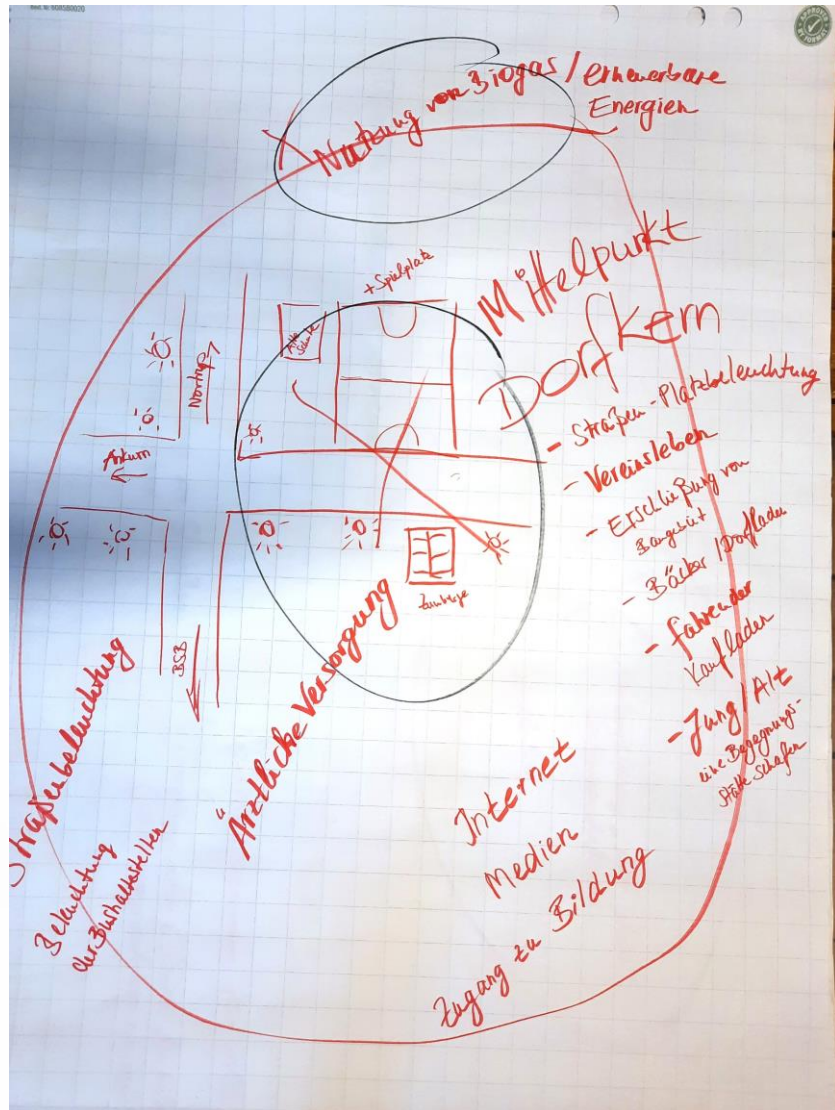 APPROVED
BY FORMAT
Nutzung von Biogas / erneuerbare
Energien
+ Spielplatz
Mittelpunkt
Dorfkern
Alte
Schule
Nortrup
Ankum
BSB
- Straßen-Platzbeleuchtung
- Vereinsleben
- Erschließung von
Baugebiet
- Bäcker / Dorfladen
- fahrender
Kaufladen
- Jung / Alt
eine Begegnungs-
stätte schaffen
Straßenbeleuchtung
Beleuchtung
der Bushaltestellen
Ärztliche Versorgung
Internet
Medien
Zugang zu Bildung